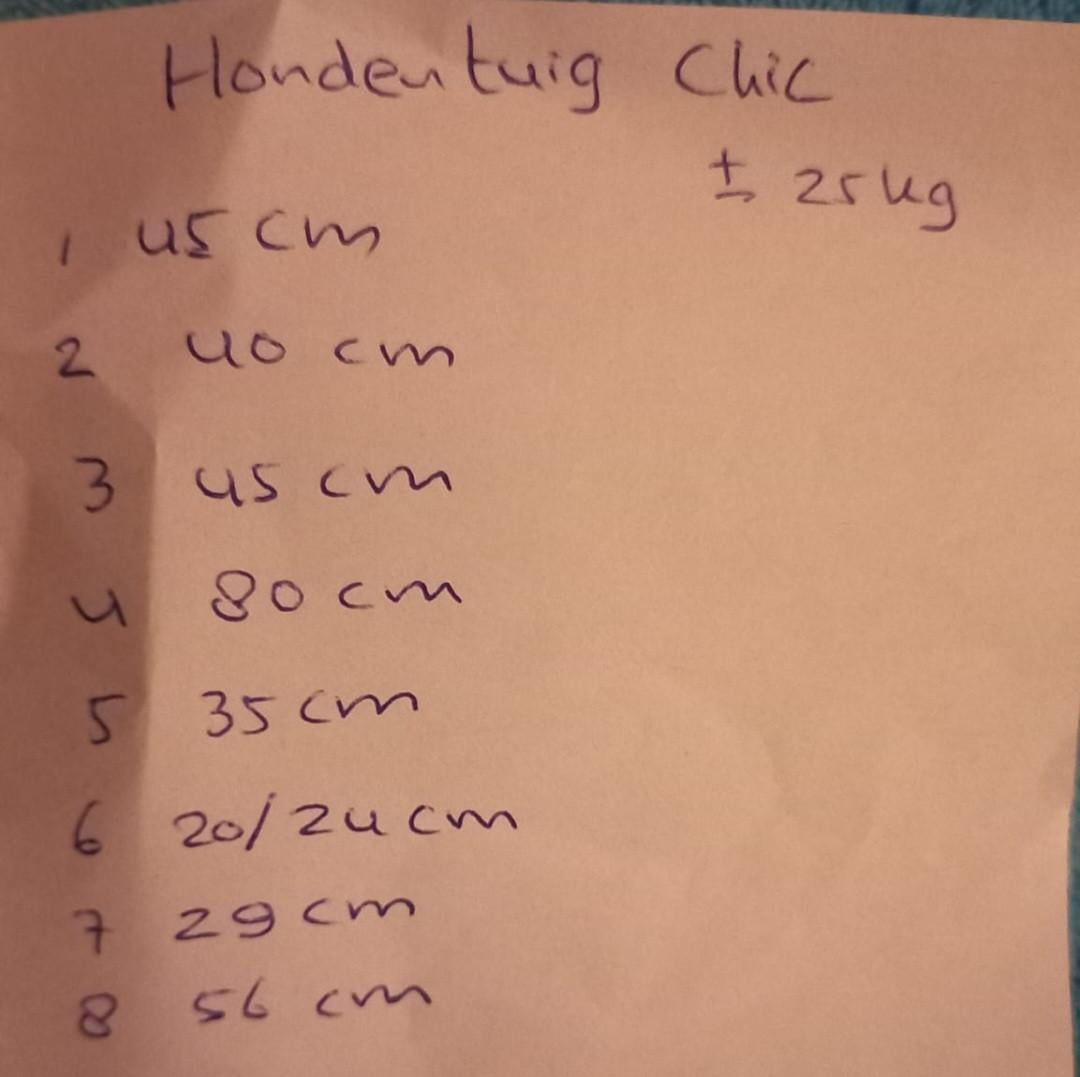 Hondentuig Chic
± 25 kg
1 45 cm
2 40 cm
3 45 cm
4 80 cm
5 35 cm
6 20/24 cm
7 29 cm
8 56 cm